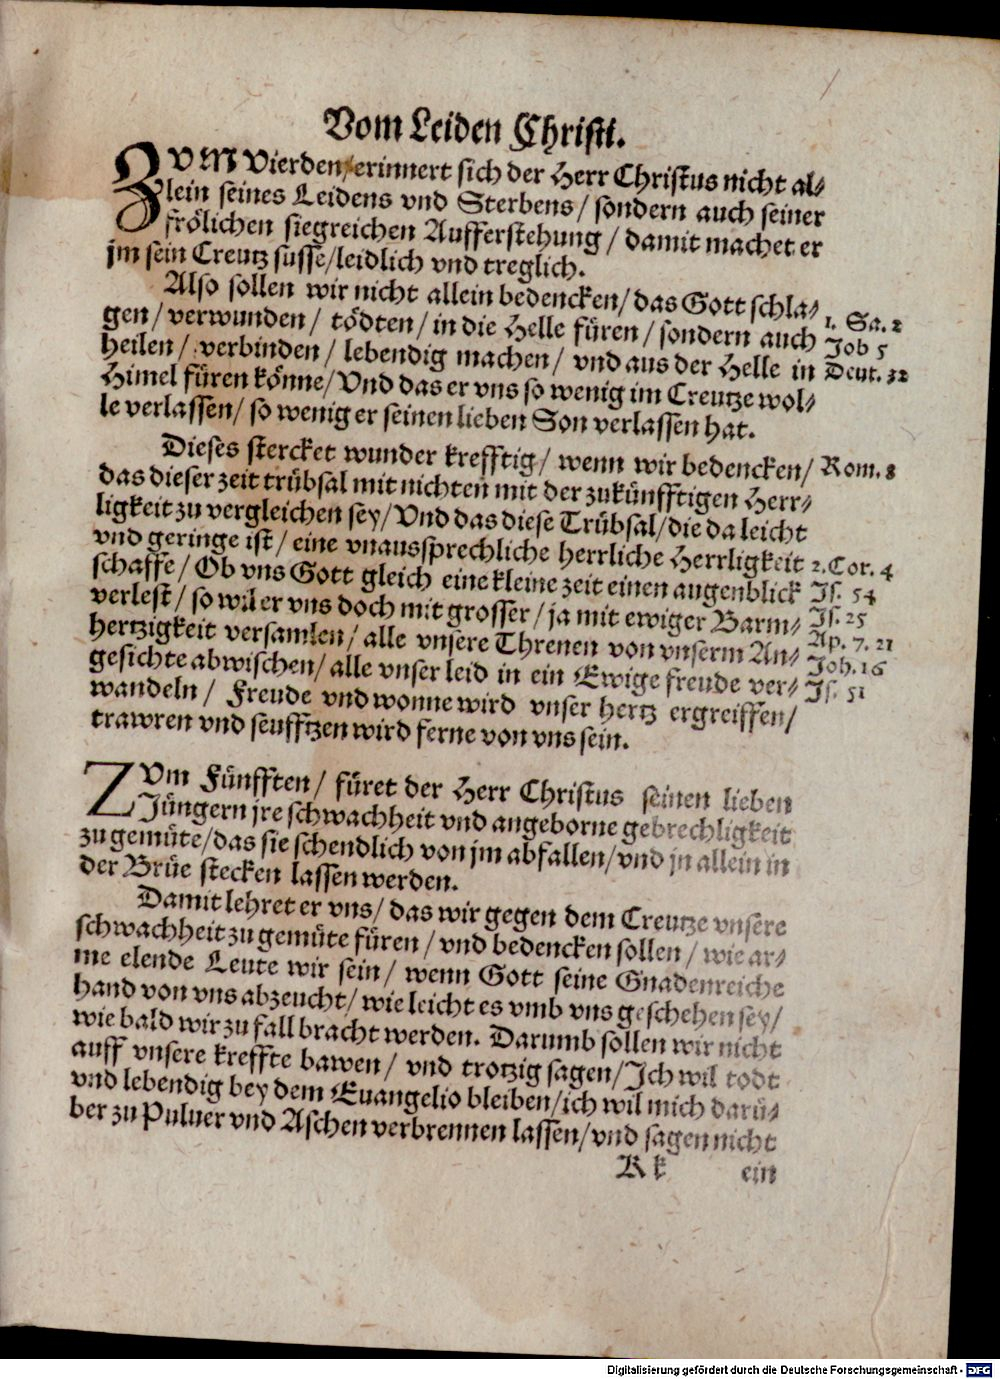 Vom Leiden Christi.
ZVM Vierden/ erinnert sich der Herr Christus nicht al⸗
lein seines Leidens vnd Sterbens/ sondern auch seiner
frölichen siegreichen Aufferstehung/ damit machet er
jm sein Creutz susse/leidlich vnd treglich.
Also sollen wir nicht allein bedencken/ das Gott schla⸗
gen/ verwunden/ tödten/ in die Helle füren/ sondern auch 1. Sa. 2
heilen/ verbinden/ lebendig machen/ vnd aus der Helle in Job 5
Himel füren könne/ Vnd das er vns so wenig im Creutze wol⸗ Deut. 32
le verlassen/ so wenig er seinen lieben Son verlassen hat.
Dieses stercket wunder krefftig/ wenn wir bedencken/ Rom. 8
das dieser zeit trübsal mit nichten mit der zukünfftigen Herr⸗
ligkeit zu vergleichen sey/ Vnd das diese Trübsal/ die da leicht
vnd geringe ist/ eine vnaussprechliche herrliche Herrligkeit 2. Cor. 4
schaffe/ Ob vns Gott gleich eine kleine zeit einen augenblick Js. 54
verlest/ so wil er vns doch mit grosser/ ja mit ewiger Barm⸗ Js. 25
hertzigkeit versamlen/ alle vnsere Threnen von vnserm An⸗ Ap. 7. 21
gesichte abwischen/ alle vnser leid in ein Ewige freude ver⸗ Joh. 16
wandeln/ Freude vnd wonne wird vnser hertz ergreiffen/ Js. 51
trawren vnd seufftzen wird ferne von vns sein.
ZVm Fünfften/ füret der Herr Christus seinen lieben
Jüngern jre schwachheit vnd angeborne gebrechligkeit
zu gemüte/ das sie schendlich von jm abfallen/ vnd jn allein in
der Brüe stecken lassen werden.
Damit lehret er vns/ das wir gegen dem Creutze vnsere
schwachheit zu gemüte füren/ vnd bedencken sollen/ wie ar⸗
me elende Leute wir sein/ wenn Gott seine Gnadenreiche
hand von vns abzeucht/ wie leicht es vmb vns geschehen sey/
wie bald wir zu fall bracht werden. Darumb sollen wir nicht
auff vnsere kreffte bawen/ vnd trotzig sagen/ Ich wil todt
vnd lebendig bey dem Euangelio bleiben/ ich wil mich darü⸗
ber zu Puluer vnd Aschen verbrennen lassen/ vnd sagen nicht
K k ein
Digitalisierung gefördert durch die Deutsche Forschungsgemeinschaft - DFG